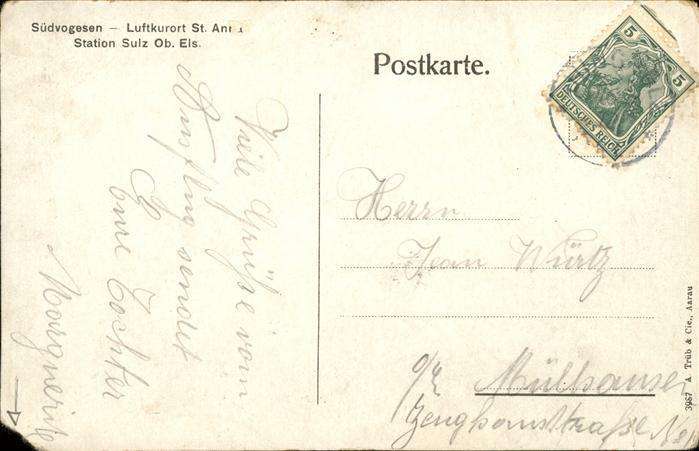 Südvogesen – Luftkurort St. Anna
Station Sulz Ob. Els.
Postkarte.
5
5
DEUTSCHES REICH
Viele Grüße vom
Ausflug sendet
Eure Tochter
Marguerite
Herrn
Jean Würtz
Mülhausen
Zeughausstraße N 8
3967 A Trüb & Cie., Aarau